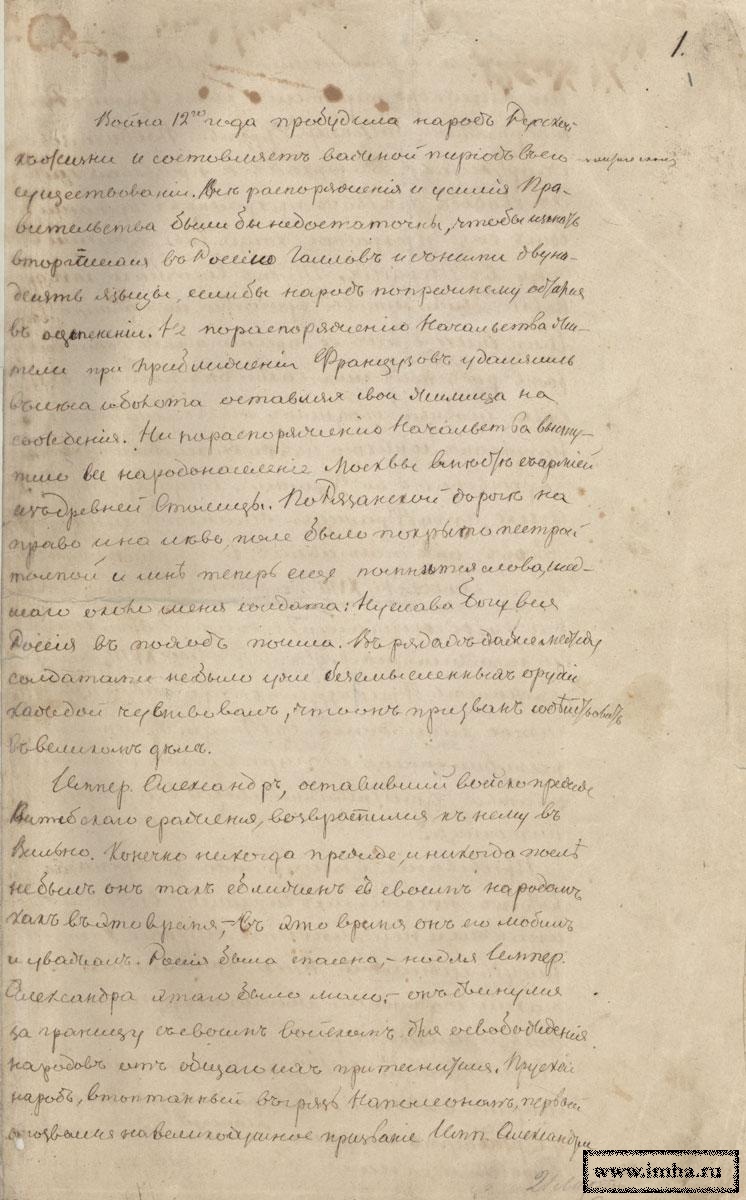 1.
Война 12го года пробудила народъ Русскій
къ жизни и составляетъ важной періодъ въ его политическомъ
существованіи. Всѣ распоряженія и усилія Пра-
вительства были бы недостаточны, чтобы изгнать
вторгшихся въ Россію Галловъ и съ ними двуна-
десять языцы, если бы народъ попрежнему остался
въ оцепененіи. Не по распоряженію Начальства жи-
тели при приближеніи Французовъ удалялись
въ лѣса и болота оставляя свои жилища на
сожженія. Не по распоряженію Начальства высту-
пило все народонаселеніе Москвы вмѣстѣ съ арміей
изъ древней Столицы. По Рязанской дорогѣ на
право и на лѣво, поле было покрыто пестрой
толпой и мнѣ теперь еще помнятся слова шед-
шаго около меня солдата: Ну слава Богу вся
Россія въ походъ пошла. Въ рядахъ даже между
солдатами не было уже безсмысленныхъ орудій
каждой чувствовалъ, что онъ призванъ содѣйствовать
въ великомъ дѣлѣ.
Импер. Александръ, оставившій войско прежде
Витебскаго сраженія, возвратился къ нему въ
Вильно. Конечно никогда прежде, и никогда послѣ
не былъ онъ такъ сближенъ съ своимъ народомъ
какъ въ это время, – въ это время онъ его любилъ
и уважалъ. Россія была спасена, – но для Импер.
Александра этаго было мало, – онъ двинулся
за границу съ своимъ войскомъ для освобожденія
народовъ отъ общаго ихъ притеснителя. Прускій
народъ, втоптанный въ грязь Наполеономъ, первый
отозвался на великодушное призваніе Импп. Александра
www.imha.ru